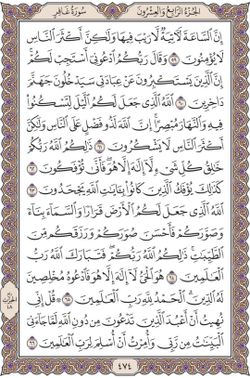 الجزء الرابع والعشرون سورة غافر
إِنَّ ٱلسَّاعَةَ لَءَاتِيَةٌ لَّا رَيْبَ فِيهَا وَلَـٰكِنَّ أَكْثَرَ ٱلنَّاسِ
لَا يُؤْمِنُونَ ٥٩ وَقَالَ رَبُّكُمُ ٱدْعُونِىٓ أَسْتَجِبْ لَكُمْ
إِنَّ ٱلَّذِينَ يَسْتَكْبِرُونَ عَنْ عِبَادَتِى سَيَدْخُلُونَ جَهَنَّمَ
دَاخِرِينَ ٦٠ ٱللَّهُ ٱلَّذِى جَعَلَ لَكُمُ ٱلَّيْلَ لِتَسْكُنُوا۟
فِيهِ وَٱلنَّهَارَ مُبْصِرًا إِنَّ ٱللَّهَ لَذُو فَضْلٍ عَلَى ٱلنَّاسِ وَلَـٰكِنَّ
أَكْثَرَ ٱلنَّاسِ لَا يَشْكُرُونَ ٦١ ذَٰلِكُمُ ٱللَّهُ رَبُّكُمْ
خَـٰلِقُ كُلِّ شَىْءٍ لَّآ إِلَـٰهَ إِلَّا هُوَ فَأَنَّىٰ تُؤْفَكُونَ ٦٢
كَذَٰلِكَ يُؤْفَكُ ٱلَّذِينَ كَانُوا۟ بِـَٔايَـٰتِ ٱللَّهِ يَجْحَدُونَ ٦٣
ٱللَّهُ ٱلَّذِى جَعَلَ لَكُمُ ٱلْأَرْضَ قَرَارًا وَٱلسَّمَآءَ بِنَآءً
وَصَوَّرَكُمْ فَأَحْسَنَ صُوَرَكُمْ وَرَزَقَكُم مِّنَ
ٱلطَّيِّبَـٰتِ ذَٰلِكُمُ ٱللَّهُ رَبُّكُمْ فَتَبَارَكَ ٱللَّهُ رَبُّ
ٱلْعَـٰلَمِينَ ٦٤ هُوَ ٱلْحَىُّ لَآ إِلَـٰهَ إِلَّا هُوَ فَٱدْعُوهُ مُخْلِصِينَ
لَهُ ٱلدِّينَ ٱلْحَمْدُ لِلَّهِ رَبِّ ٱلْعَـٰلَمِينَ ٦٥ قُلْ إِنِّى
نُهِيتُ أَنْ أَعْبُدَ ٱلَّذِينَ تَدْعُونَ مِن دُونِ ٱللَّهِ لَمَّا جَآءَنِىَ
ٱلْبَيِّنَـٰتُ مِن رَّبِّى وَأُمِرْتُ أَنْ أُسْلِمَ لِرَبِّ ٱلْعَـٰلَمِينَ ٦٦
٤٧٤